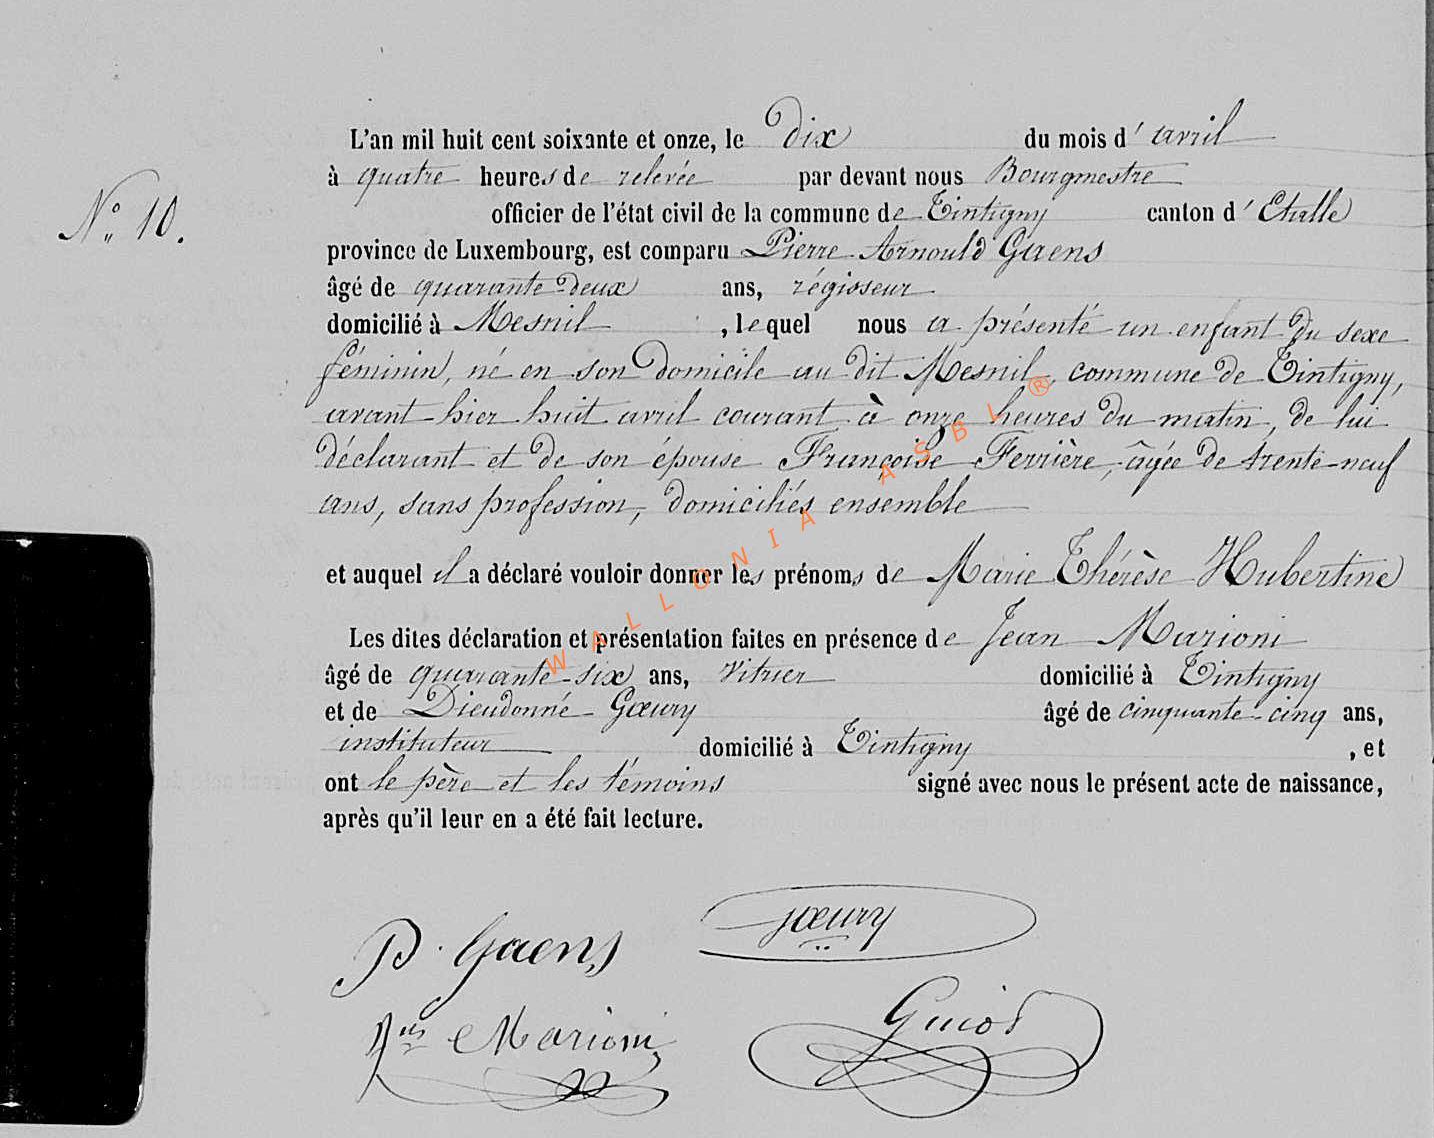 L'an mil huit cent soixante et onze, le dix du mois d' avril
à quatre heures de relevée par devant nous Bourgmestre
N° 10.
officier de l'état civil de la commune de Tintigny canton d' Etalle
province de Luxembourg, est comparu Pierre Arnould Gaens
âgé de quarante-deux ans, régisseur
domicilié à Mesnil, lequel nous a présenté un enfant du sexe
féminin, né en son domicile au dit Mesnil, commune de Tintigny,
avant-hier huit avril courant à onze heures du matin, de lui
déclarant et de son épouse Françoise Ferrière, âgée de trente-neuf
ans, sans profession, domiciliés ensemble
et auquel il a déclaré vouloir donner les prénoms de Marie Thérèse Hubertine
Les dites déclaration et présentation faites en présence de Jean Marioni
âgé de quarante-six ans, vitrier domicilié à Tintigny
et de Dieudonné Gœury âgé de cinquante-cinq ans,
instituteur domicilié à Tintigny, et
ont le père et les témoins signé avec nous le présent acte de naissance,
après qu'il leur en a été fait lecture.
Gœury
P. Gaens
Guiot
Marioni
WALLONIA ASBL ®